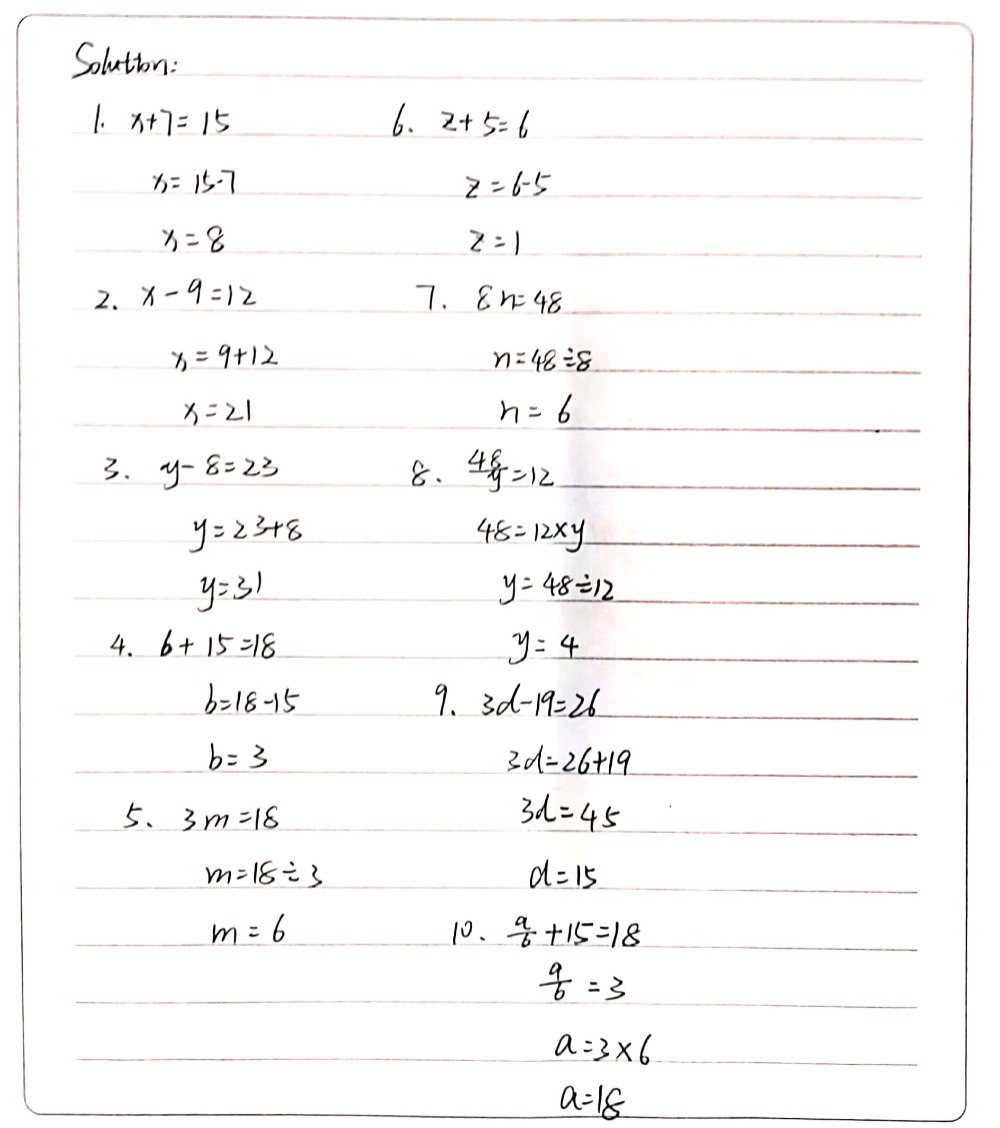 Solution:
1. x+7=15
x=15-7
x=8
2. x-9=12
x=9+12
x=21
3. y-8=23
y=23+8
y=31
4. b+15=18
b=18-15
b=3
5. 3m=18
m=18÷3
m=6
6. z+5=6
z=6-5
z=1
7. 8n=48
n=48÷8
n=6
8. 48/y=12
48=12×y
y=48÷12
y=4
9. 3d-19=26
3d=26+19
3d=45
d=15
10. a/6+15=18
a/6=3
a=3×6
a=18